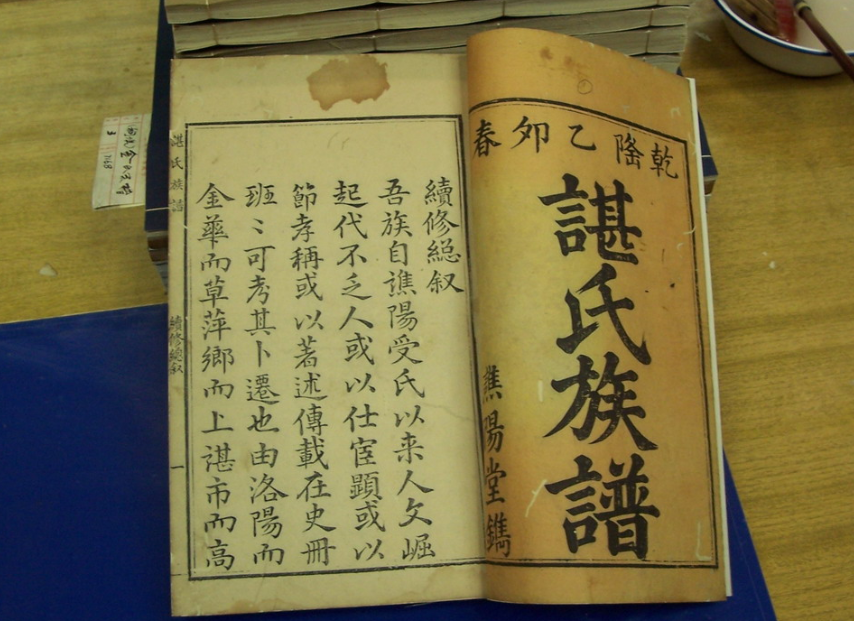 乾隆乙夘春
諶氏族譜
譙陽堂鐫
續修総叙
吾族自譙陽受氏以来人文崛
起代不乏人或以仕宦顯或以
節孝稱或以著述傳載在史冊
班〻可考其卜遷也由洛陽而
金華而草萍鄉而上諶市而高
諶氏族譜
續修總叙
一